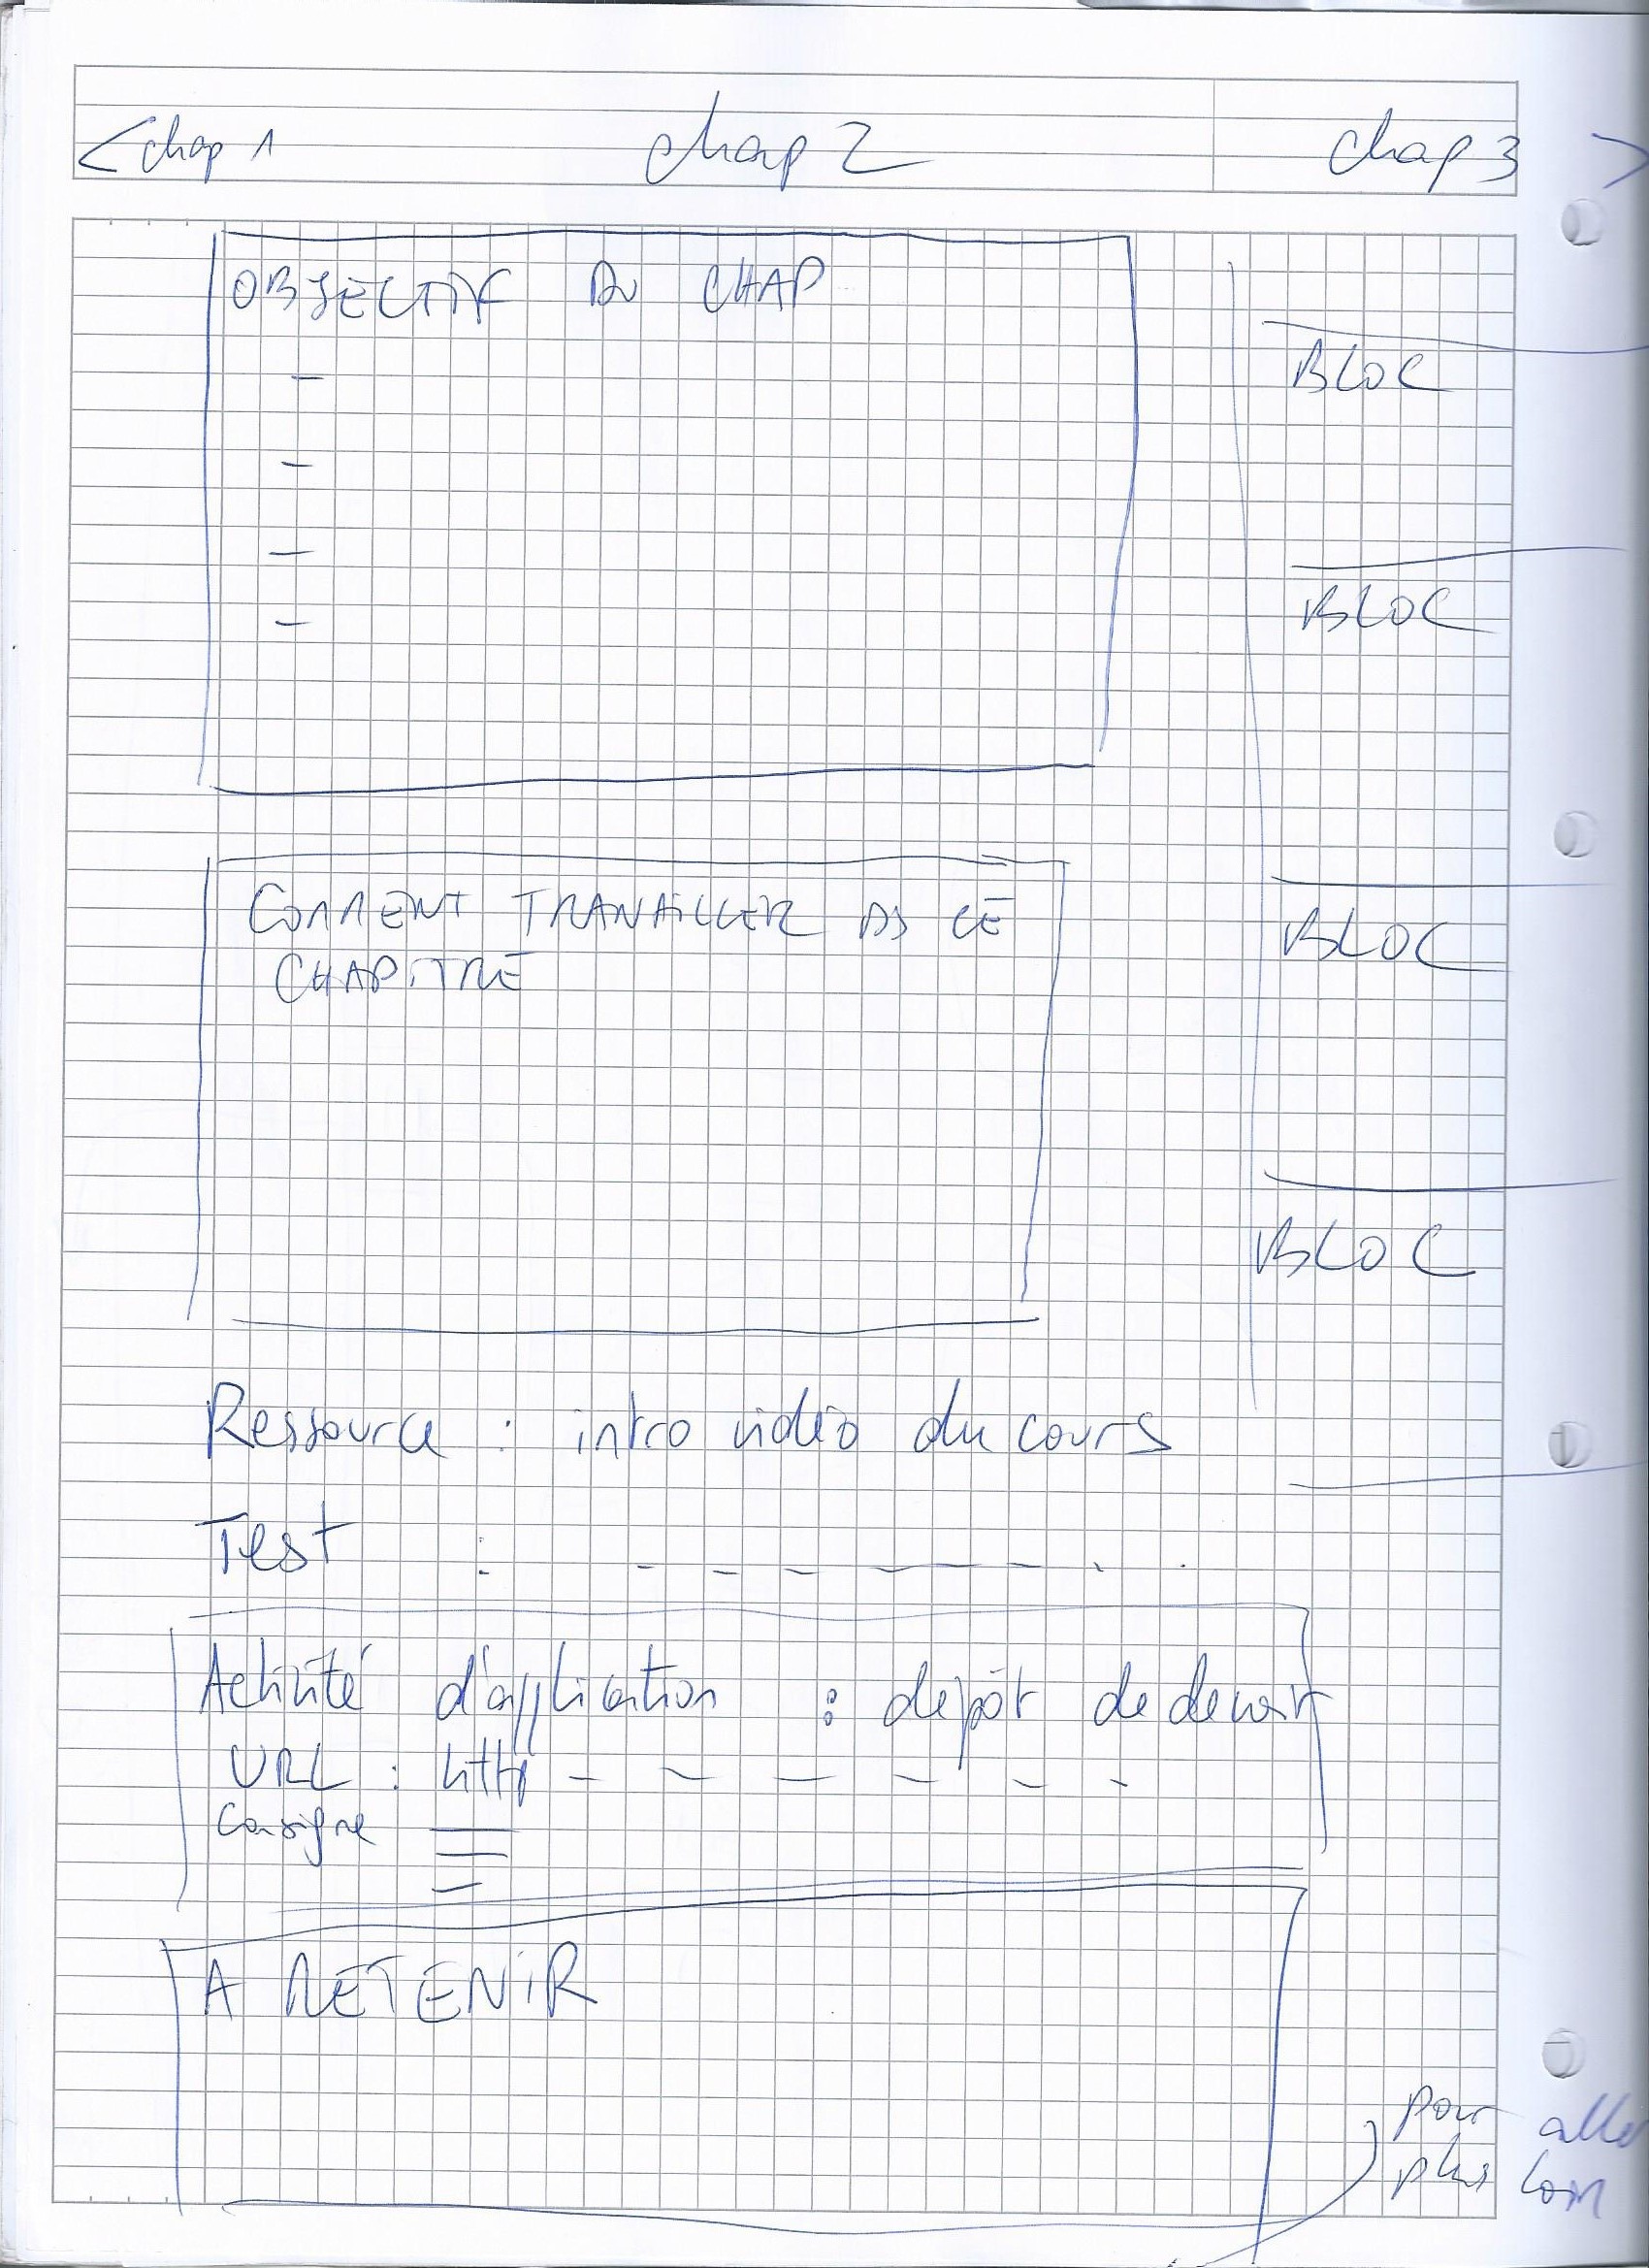 < chap 1 chap 2 chap 3 >
OBJECTIF DU CHAP
-
-
-
-
BLOC
BLOC
COMMENT TRAVAILLER DS CE
CHAPITRE
BLOC
BLOC
Ressource : intro vidéo du cours
Test : - - - - - - -
Activité d'application : dépôt de devoir
URL : http - - - - - -
Consigne
A RETENIR
pour aller
plus loin